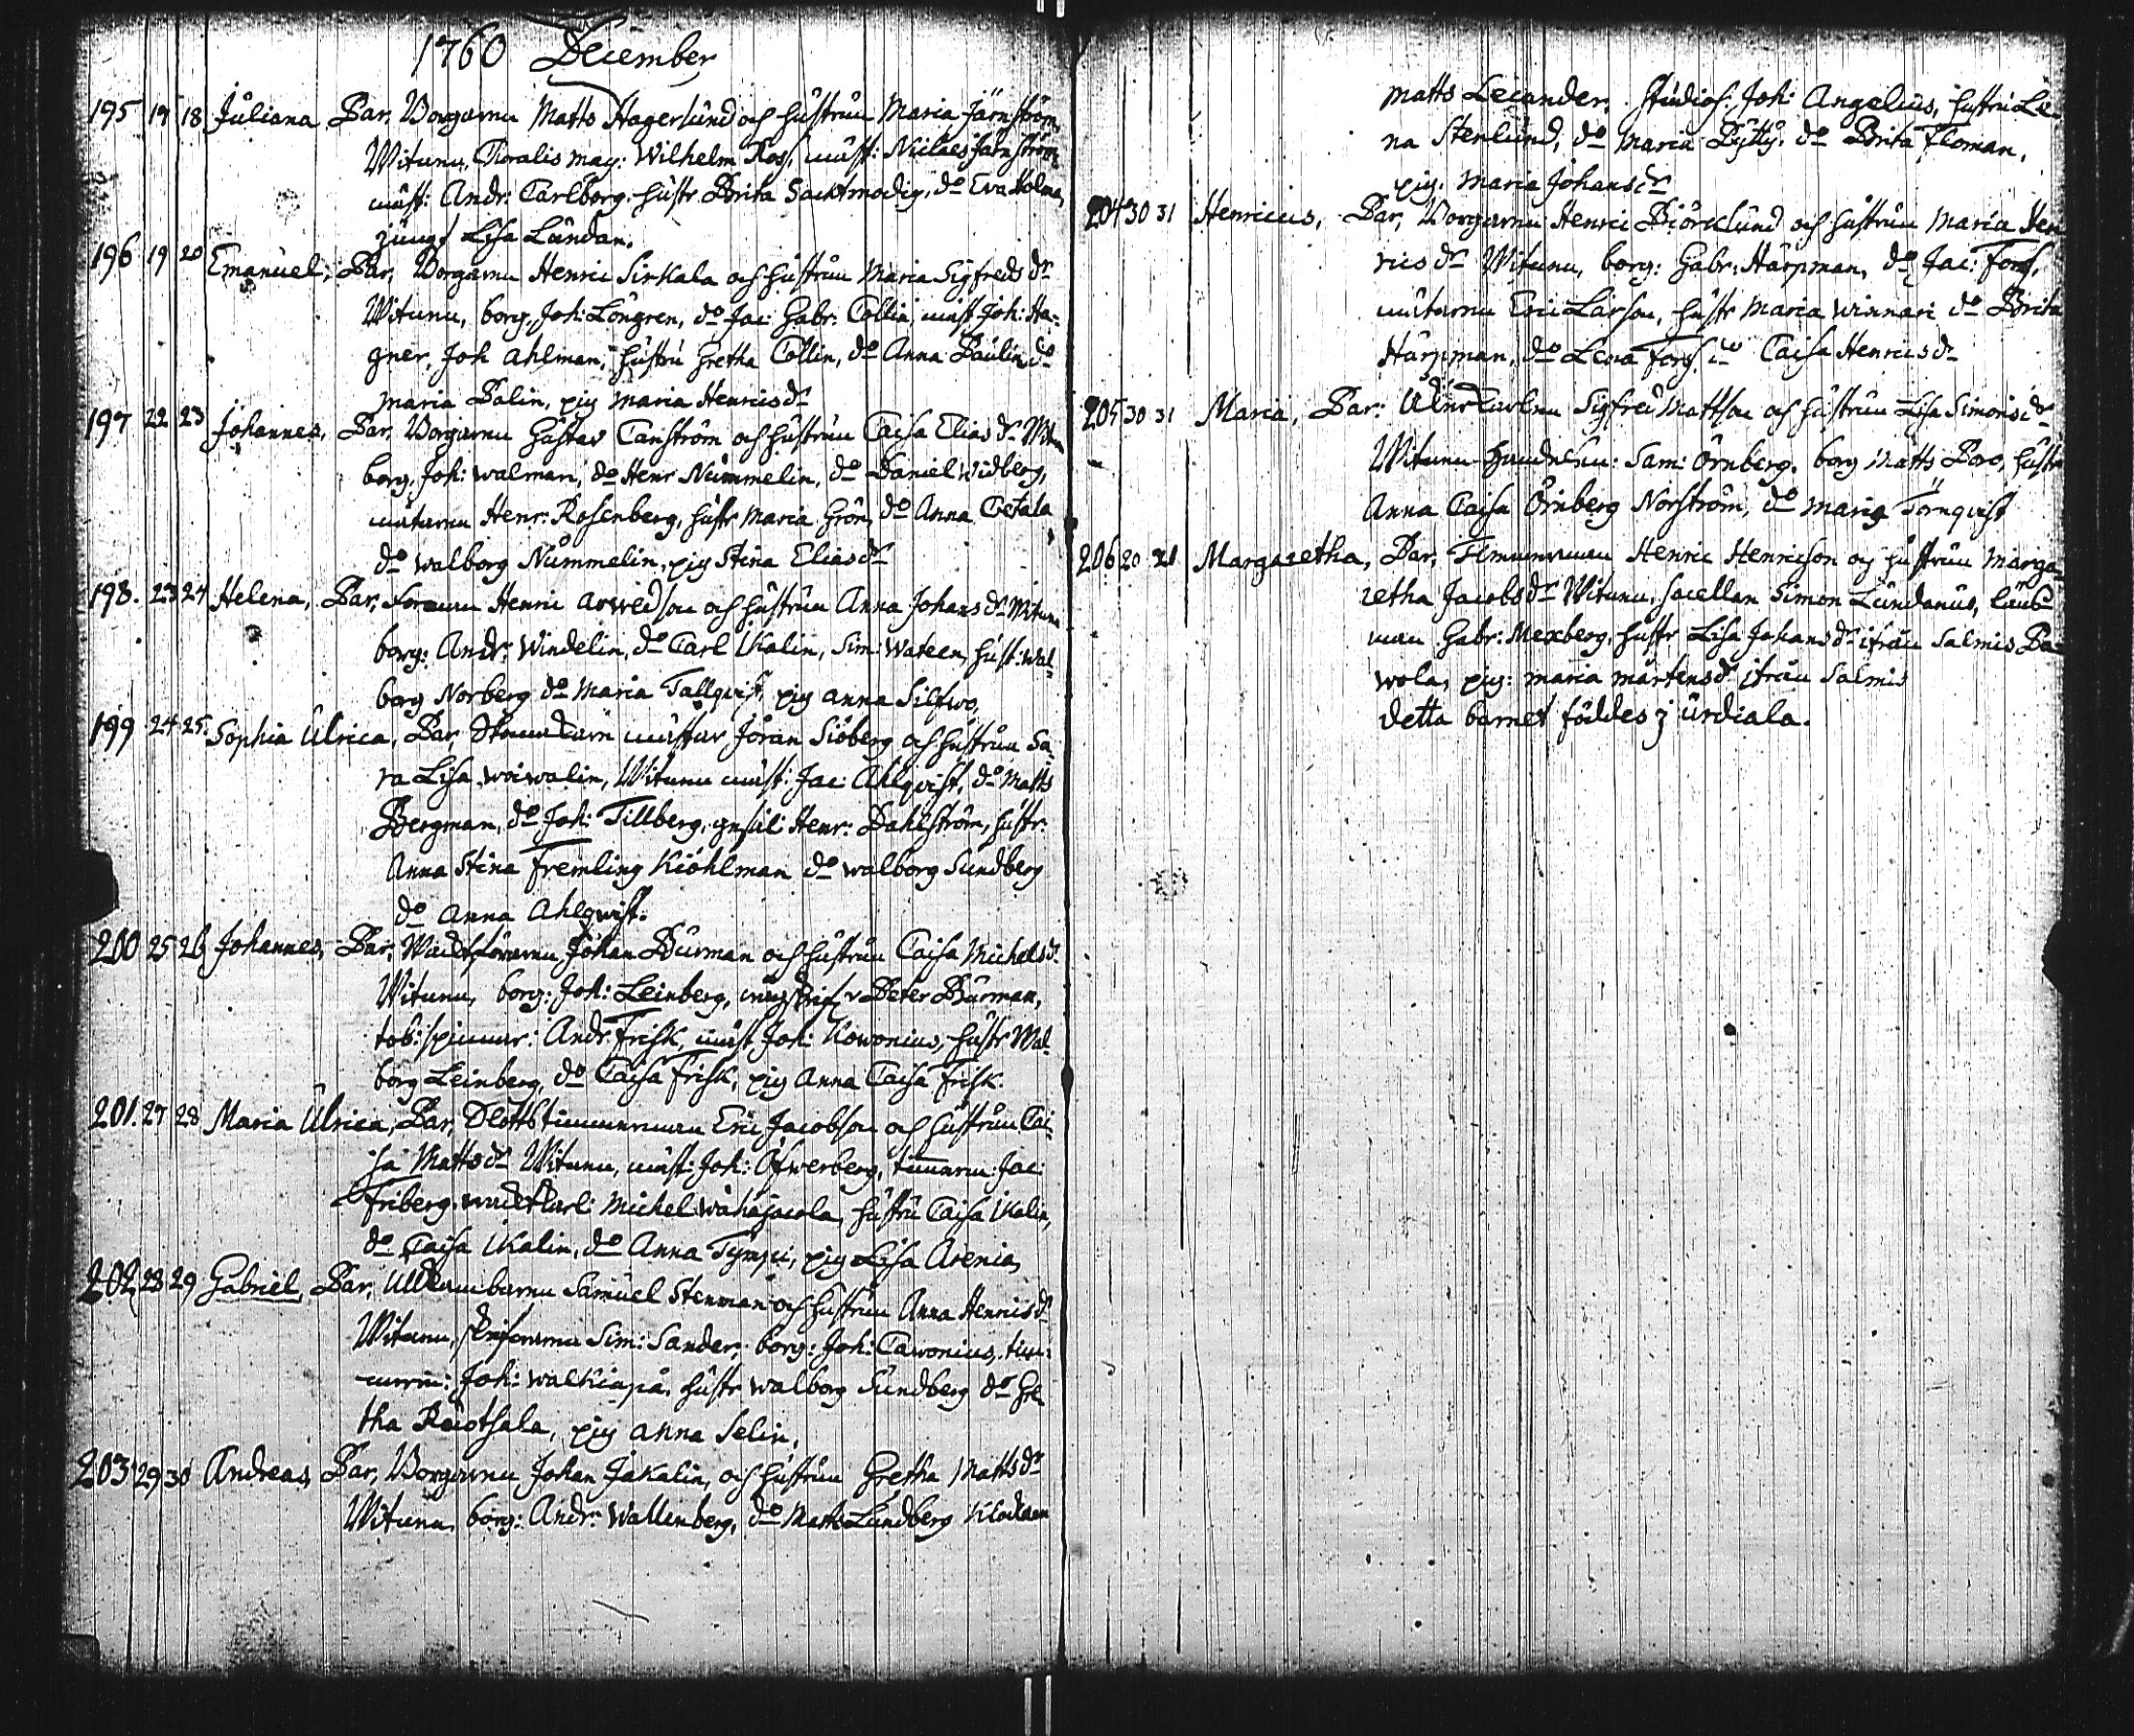 1760 December
195 17 18 Juliana Par, Borgaren Matts Hagerlund och hustrun Maria Järnström
Witnen, Choralis mag: Wilhelm Ross, mäst: Niclaes Järnström
mäst: Andr: Carlborg. hustr Brita Sacktmodig, do Eva Holma,
jungf Lisa Lundan.
196 19 20 Emanuel, Par, Borgaren Henric Sirkala och hustrun Maria Sigfreds dr
Witnen, borg. Joh: Löngren, do Jac: Gabr: Collin, mäst Joh: Ha-
gner, Joh Ahlman, hustru Gretha Collin, do Anna Paulin, do
Maria Palin, pig Maria Henricsdr
197 22 23 Johannes, Par, Borgaren Gustav Canström och hustrun Caisa Elias dr Witn
borg. Joh: Walman, do Henr Nummelin, do Daniel Widberg,
mäturen Henr: Rosenberg, hustr Maria Grön, do Anna Cetala
do Walborg Nummelin, pig Stina Elias dr
198. 23 24 Helena, Par, Henric Arwedson och hustrun Anna Johans dr Witnen
borg: Andr: Windelin, do Carl Ikalin, Sim: Wateen, hust: Wal-
borg Norberg do Maria Tallqvist, pig Anna Silfwo,
199 24 25. Sophia Ulrica, Par, mästar Jöran Siöberg och hustrun Sa
ra Lisa Woiwalin, Witnen mäst: Jac: Ahlqvist, do Matts
Bergman, do Joh: Tillberg, gesäl: Henr: Dahlström, hustr:
Anna Stina Fremling Kiöhlman do Walborg Sundberg
do Anna Ahlqwist.
200 25 26 Johannes, Par, Johan Burman och hustrun Caisa Michelsd.
Witnen, borg: Joh: Leinberg, Peter Burman,
tob: spinnar: Andr: Frisk, mäst Joh: Kowonius, hustr Wal-
borg Leinberg, do Caisa Frisk, pig Anna Caisa Frisk.
201. 27 28 Maria Ulrica, Par, Slottstimmerman Eric Jacobson och hustrun Cai-
sa Matts dr Witnen, mäst: Joh: Öfwerberg, timmerm: Jac:
Friberg, Michel Wähäjacola, hustru Caisa Ikalin,
do Caisa Ikalin, do Anna Tympi, pig Lisa Arenia,
202 28 29 Gabriel, Par, Samuel Stenman och hustrun Anna Henrics dr
Witnen, Sim: Sander, borg: Joh: Cawonius, tim-
merm: Joh: Walkiapä, hustr Walborg Sundberg do Gre
tha Ruotsala, pig Anna Selin,
203 29 30 Andreas, Par, Borgaren Johan Jakalin, och hustrun Gretha Matts dr
Witnen, borg: Andr: Wallenberg, do Matts Lundberg Klockaren
Matts Leiander. studios: Joh: Angelius, hustru Le-
na Stenlund, do Maria Pytty, do Brita Floman,
pig. Maria Johansdr
204 30 31 Henricus, Par, Borgaren Henric Biörclund och hustrun Maria Hen
rics dr Witnen, borg: Gabr: Harpman, do Jac: Forss,
mäturen Eric Larson, hustr Maria Winnari do Brita
Harpman, do Lena Forss, do Caisa Henricsdr
205 30 31 Maria, Par: Sigfred Mattson och hustrun Lisa Simonsdr
Witnen Sam: Örnberg. borg Matts Boro, hustr
Anna Caisa Örnberg Norström, do Maria Törnqvist
206 20 21 Margaretha, Par, Timmerman Henric Henricson och hustrun Marga
retha Jacobs dr Witnen, sacellan Simon Lundanus,
man Gabr: Mexberg, hustr Lisa Johans dr ifrån Salmis Pa-
wola, pig: Maria Mårtens dr ifrån Salmis
detta barnet föddes j Urdiala.